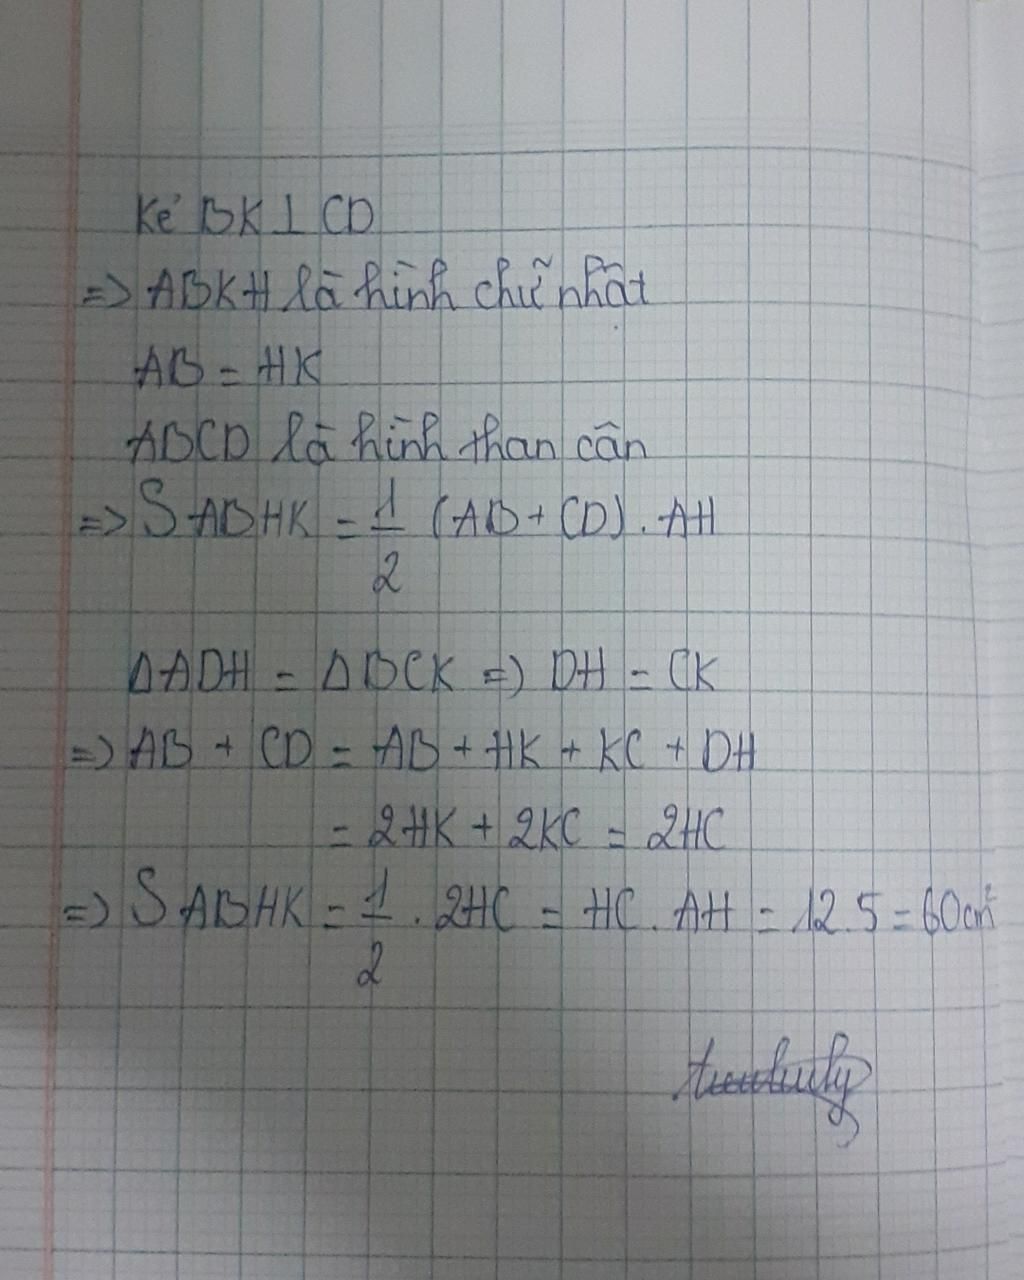 Kẻ BK ⊥ CD
=> ABKH là hình chữ nhật
AB = HK
ABCD là hình than cân
=> S ABHK = 1/2 (AB + CD) . AH
Δ ADH = Δ BCK => DH = CK
=> AB + CD = AB + HK + KC + DH
= 2HK + 2KC = 2HC
=> S ABHK = 1/2 . 2HC = HC . AH = 12.5 = 60cm²